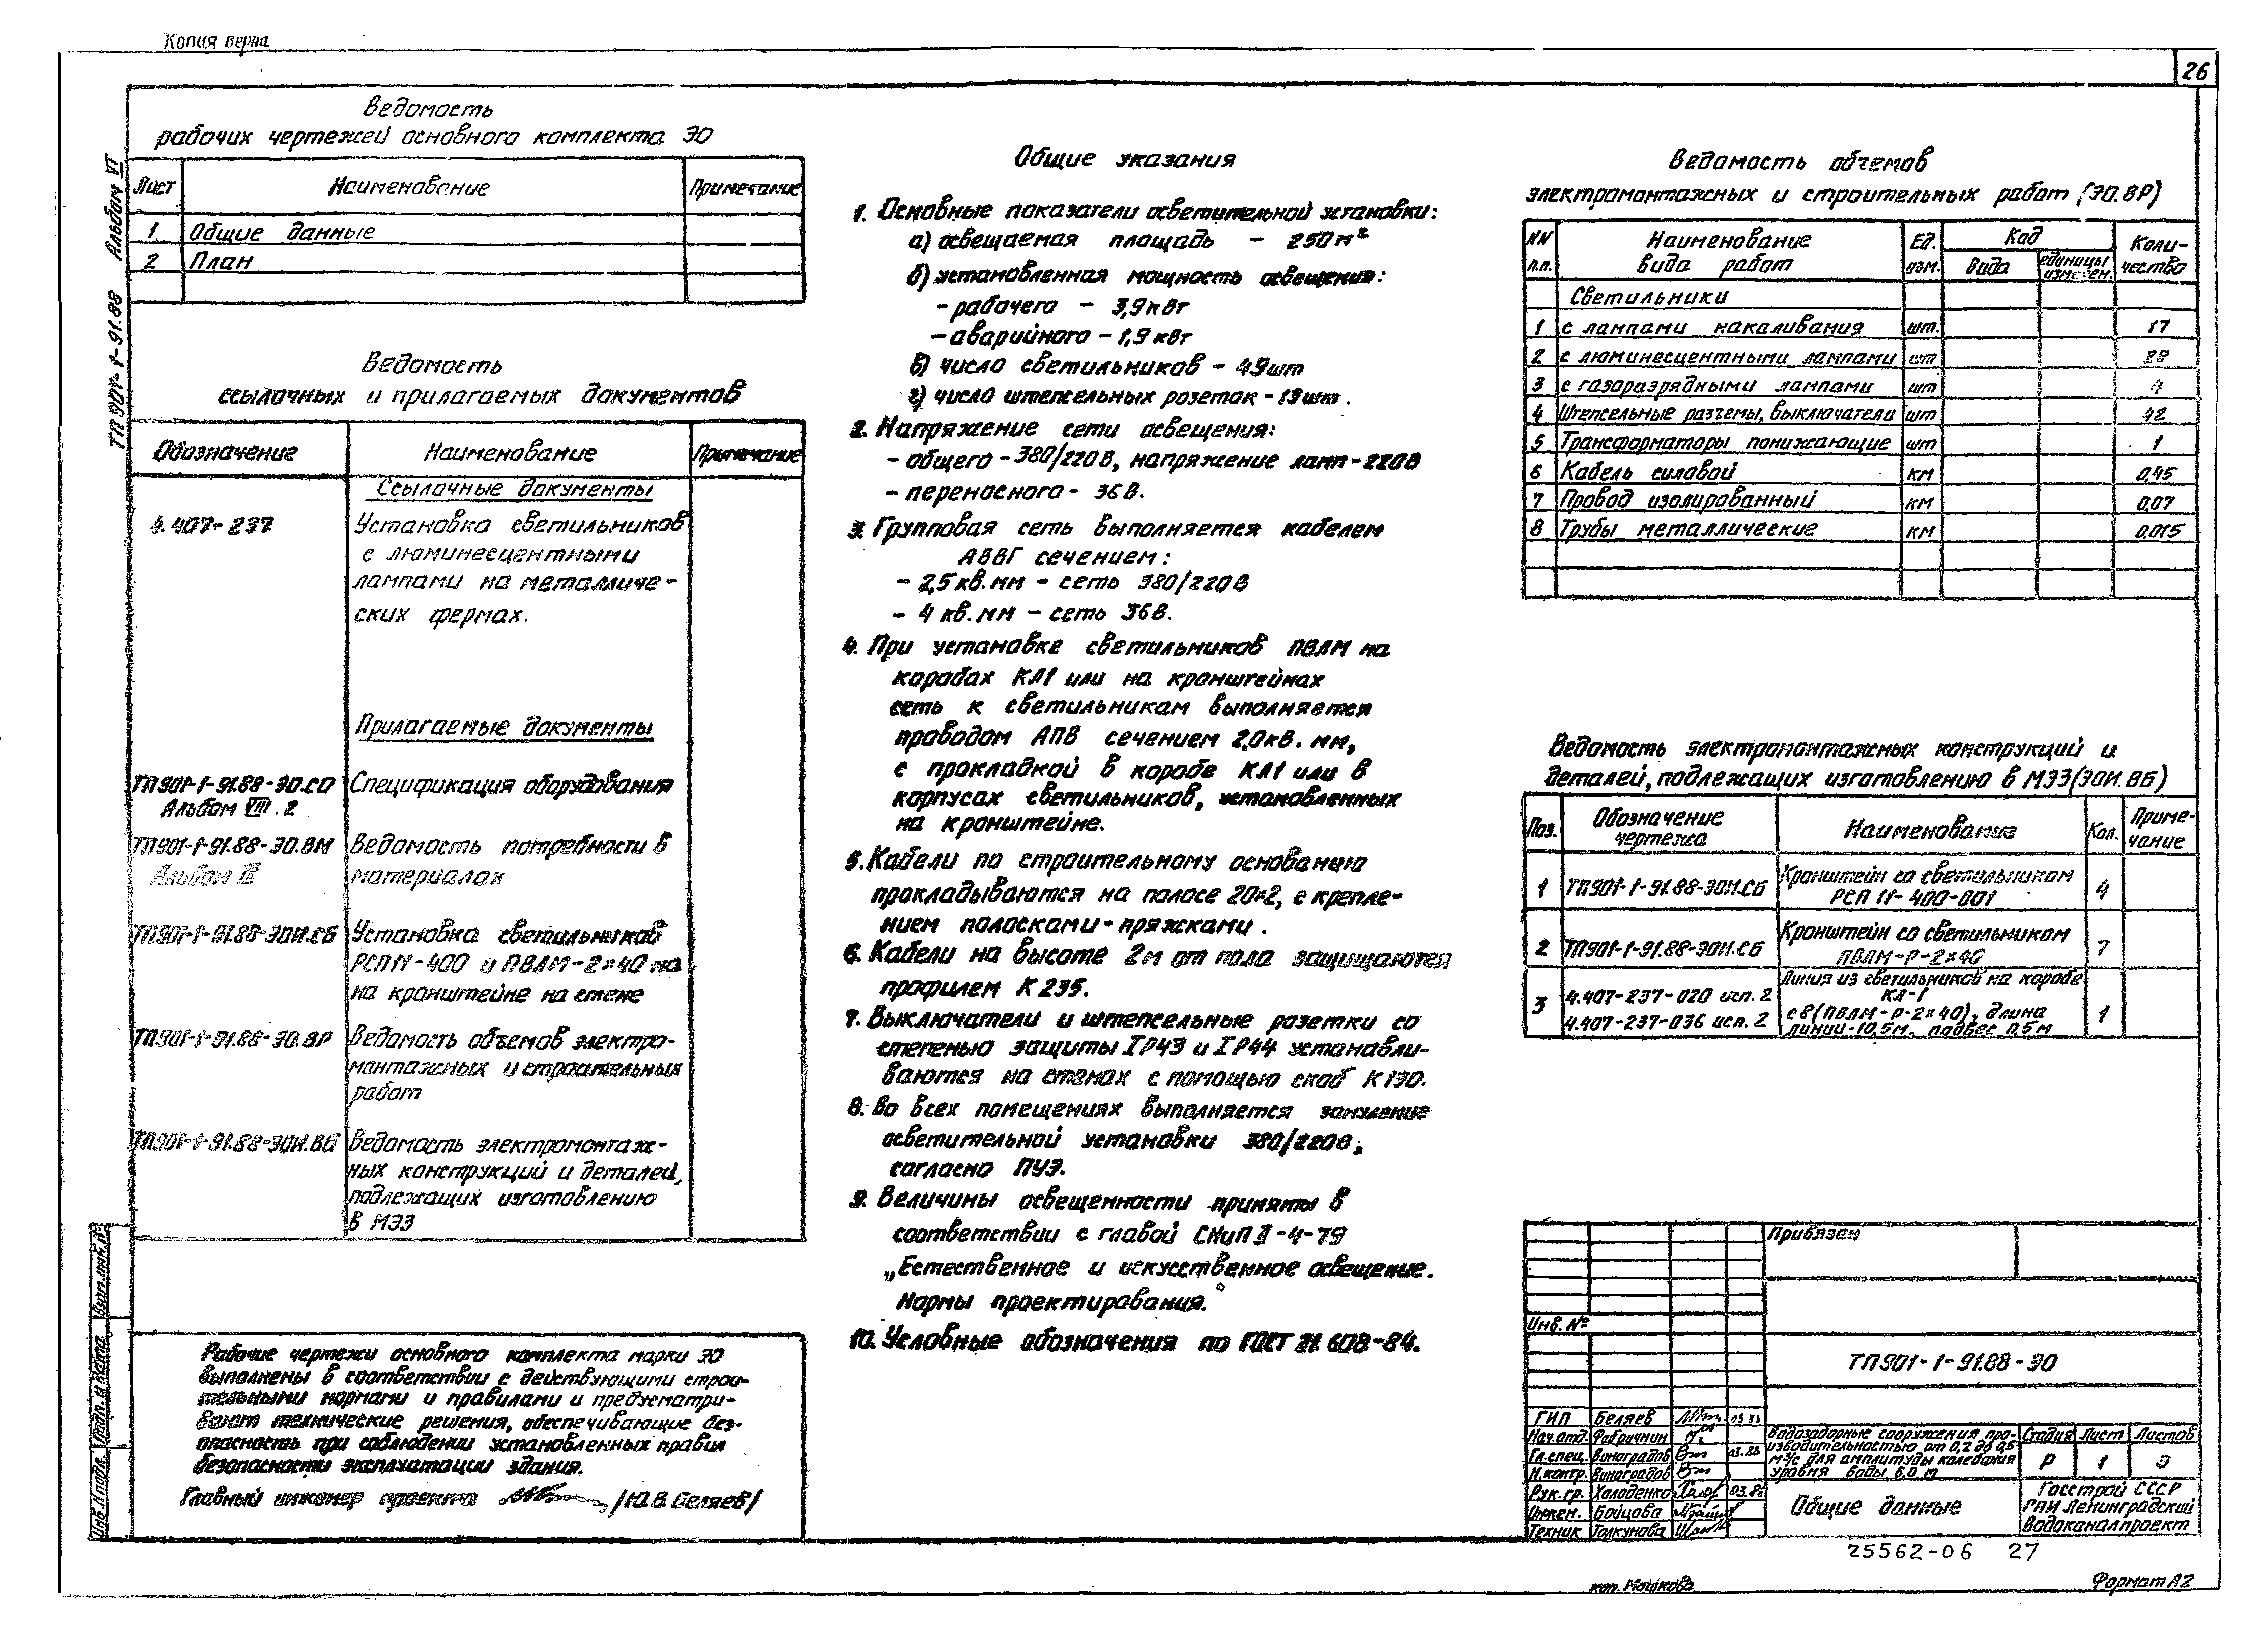 Копия верна
26
Альбом VI
ТП 901-1-91.88
Ведомость
рабочих чертежей основного комплекта ЭО
Лист Наименование Примечание
1 Общие данные
2 План
Ведомость
ссылочных и прилагаемых документов
Обозначение Наименование Примечание
Ссылочные документы
4.407-237 Установка светильников
с люминесцентными
лампами на металличе-
ских фермах.
Прилагаемые документы
ТП901-1-91.88-ЭО.СО Спецификация оборудования
Альбом VIII.2
ТП901-1-91.88-ЭО.ВМ Ведомость потребности в
Альбом материалах
ТП901-1-91.88-ЭОИ.СБ Установка светильников
РСП11-400 и ПВЛМ-2×40 на
на кронштейне на стене
ТП901-1-91.88-ЭО.ВР Ведомость объемов электро-
монтажных и строительных
работ
ТП901-1-91.88-ЭОИ.ВБ Ведомость электромонтаж-
ных конструкций и деталей,
подлежащих изготовлению
в МЭЗ
Рабочие чертежи основного комплекта марки ЭО
выполнены в соответствии с действующими строи-
тельными нормами и правилами и предусматри-
вают технические решения, обеспечивающие без-
опасность при соблюдении установленных правил
безопасности эксплуатации здания.
Главный инженер проекта /Ю.В. Беляев/
Взам.инв.№
Подп. и дата
Инв.№подл.
Общие указания
1. Основные показатели осветительной установки:
а) освещаемая площадь - 250 м²
б) установленная мощность освещения:
- рабочего - 3,9 кВт
- аварийного - 1,9 кВт
в) число светильников - 49 шт
г) число штепсельных розеток - 19 шт.
2. Напряжение сети освещения:
- общего - 380/220 В, напряжение ламп - 220 В
- переносного - 36 В.
3. Групповая сеть выполняется кабелем
АВВГ сечением:
- 2,5 кв.мм - сеть 380/220 В
- 4 кв.мм - сеть 36 В.
4. При установке светильников ПВЛМ на
коробах КЛ1 или на кронштейнах
сеть к светильникам выполняется
проводом АПВ сечением 2,0 кв.мм,
с прокладкой в коробе КЛ1 или в
корпусах светильников, установленных
на кронштейне.
5. Кабели по строительному основанию
прокладываются на полосе 20×2, с крепле-
нием полосками-пряжками.
6. Кабели на высоте 2м от пола защищаются
профилем К235.
7. Выключатели и штепсельные розетки со
степенью защиты IP43 и IP44 устанавли-
ваются на стенах с помощью скоб
8. Во всех помещениях выполняется зануление
осветительной установки 380/220В,
согласно ПУЭ.
9. Величины освещенности приняты в
соответствии с главой СНиП II-4-79
„Естественное и искусственное освещение.
Нормы проектирования."
10. Условные обозначения по ГОСТ 21 608-84.
Ведомость объемов
электромонтажных и строительных работ (ЭО.ВР)
NN п.п. Наименование вида работ Ед. изм. Код вида единицы измерен. Количество
Светильники
1 с лампами накаливания шт. 17
2 с люминесцентными лампами шт 28
3 с газоразрядными лампами шт 4
4 Штепсельные разъемы, выключатели шт 42
5 Трансформаторы понижающие шт 1
6 Кабель силовой км 0,45
7 Провод изолированный км 0,07
8 Трубы металлические км 0,015
Ведомость электромонтажных конструкций и
деталей, подлежащих изготовлению в МЭЗ (ЭОИ.ВБ)
Поз. Обозначение чертежа Наименование Кол. Примечание
1 ТП901-1-91.88-ЭОИ.СБ Кронштейн со светильником РСП 11-400-001 4
2 ТП901-1-91.88-ЭОИ.СБ Кронштейн со светильником ПВЛМ-Р-2×40 7
3 4.407-237-020 исп. 2 Линия из светильников на коробе КЛ-1
4.407-237-036 исп. 2 с 8(ПВЛМ-Р-2×40), длина линии-10,5м, подвес 0,5м 1
Привязан
Инв. №
ТП901-1-91.88-ЭО
ГИП Беляев
Нач.отд. Фабричнин
Гл.спец. Виноградов 03.88
Н.контр. Виноградов
Рук.гр. Холоденко 03.88
Инжен. Бойцова
Техник Толкунова
Водозаборные сооружения про-
изводительностью от 0,2 до 0,5
м³/с для амплитуды колебания
уровня воды 6,0 м
Стадия Лист Листов
Р 1 3
Общие данные
Госстрой СССР
ГПИ Ленинградский
Водоканалпроект
25562-06 27
коп. Мошкова
Формат А2